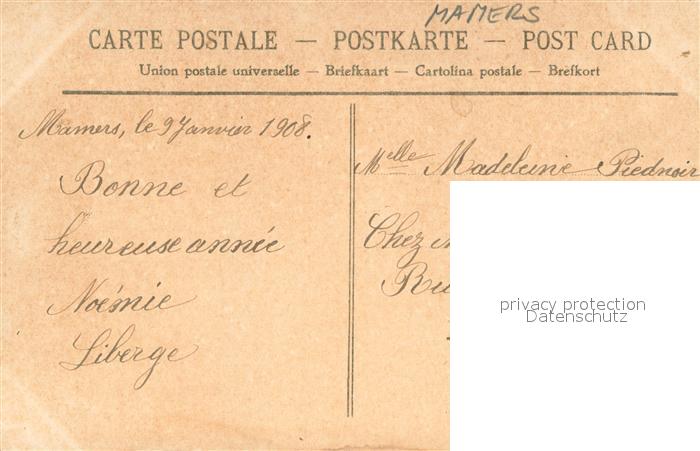 MAMERS
CARTE POSTALE — POSTKARTE — POST CARD
Union postale universelle — Briefkaart — Cartolina postale — Brefkort
Mamers, le 9 Janvier 1908.
Bonne et
heureuse année
Noémie
Liberge
Melle Madeleine Piednoir
Chez
privacy protection
Datenschutz